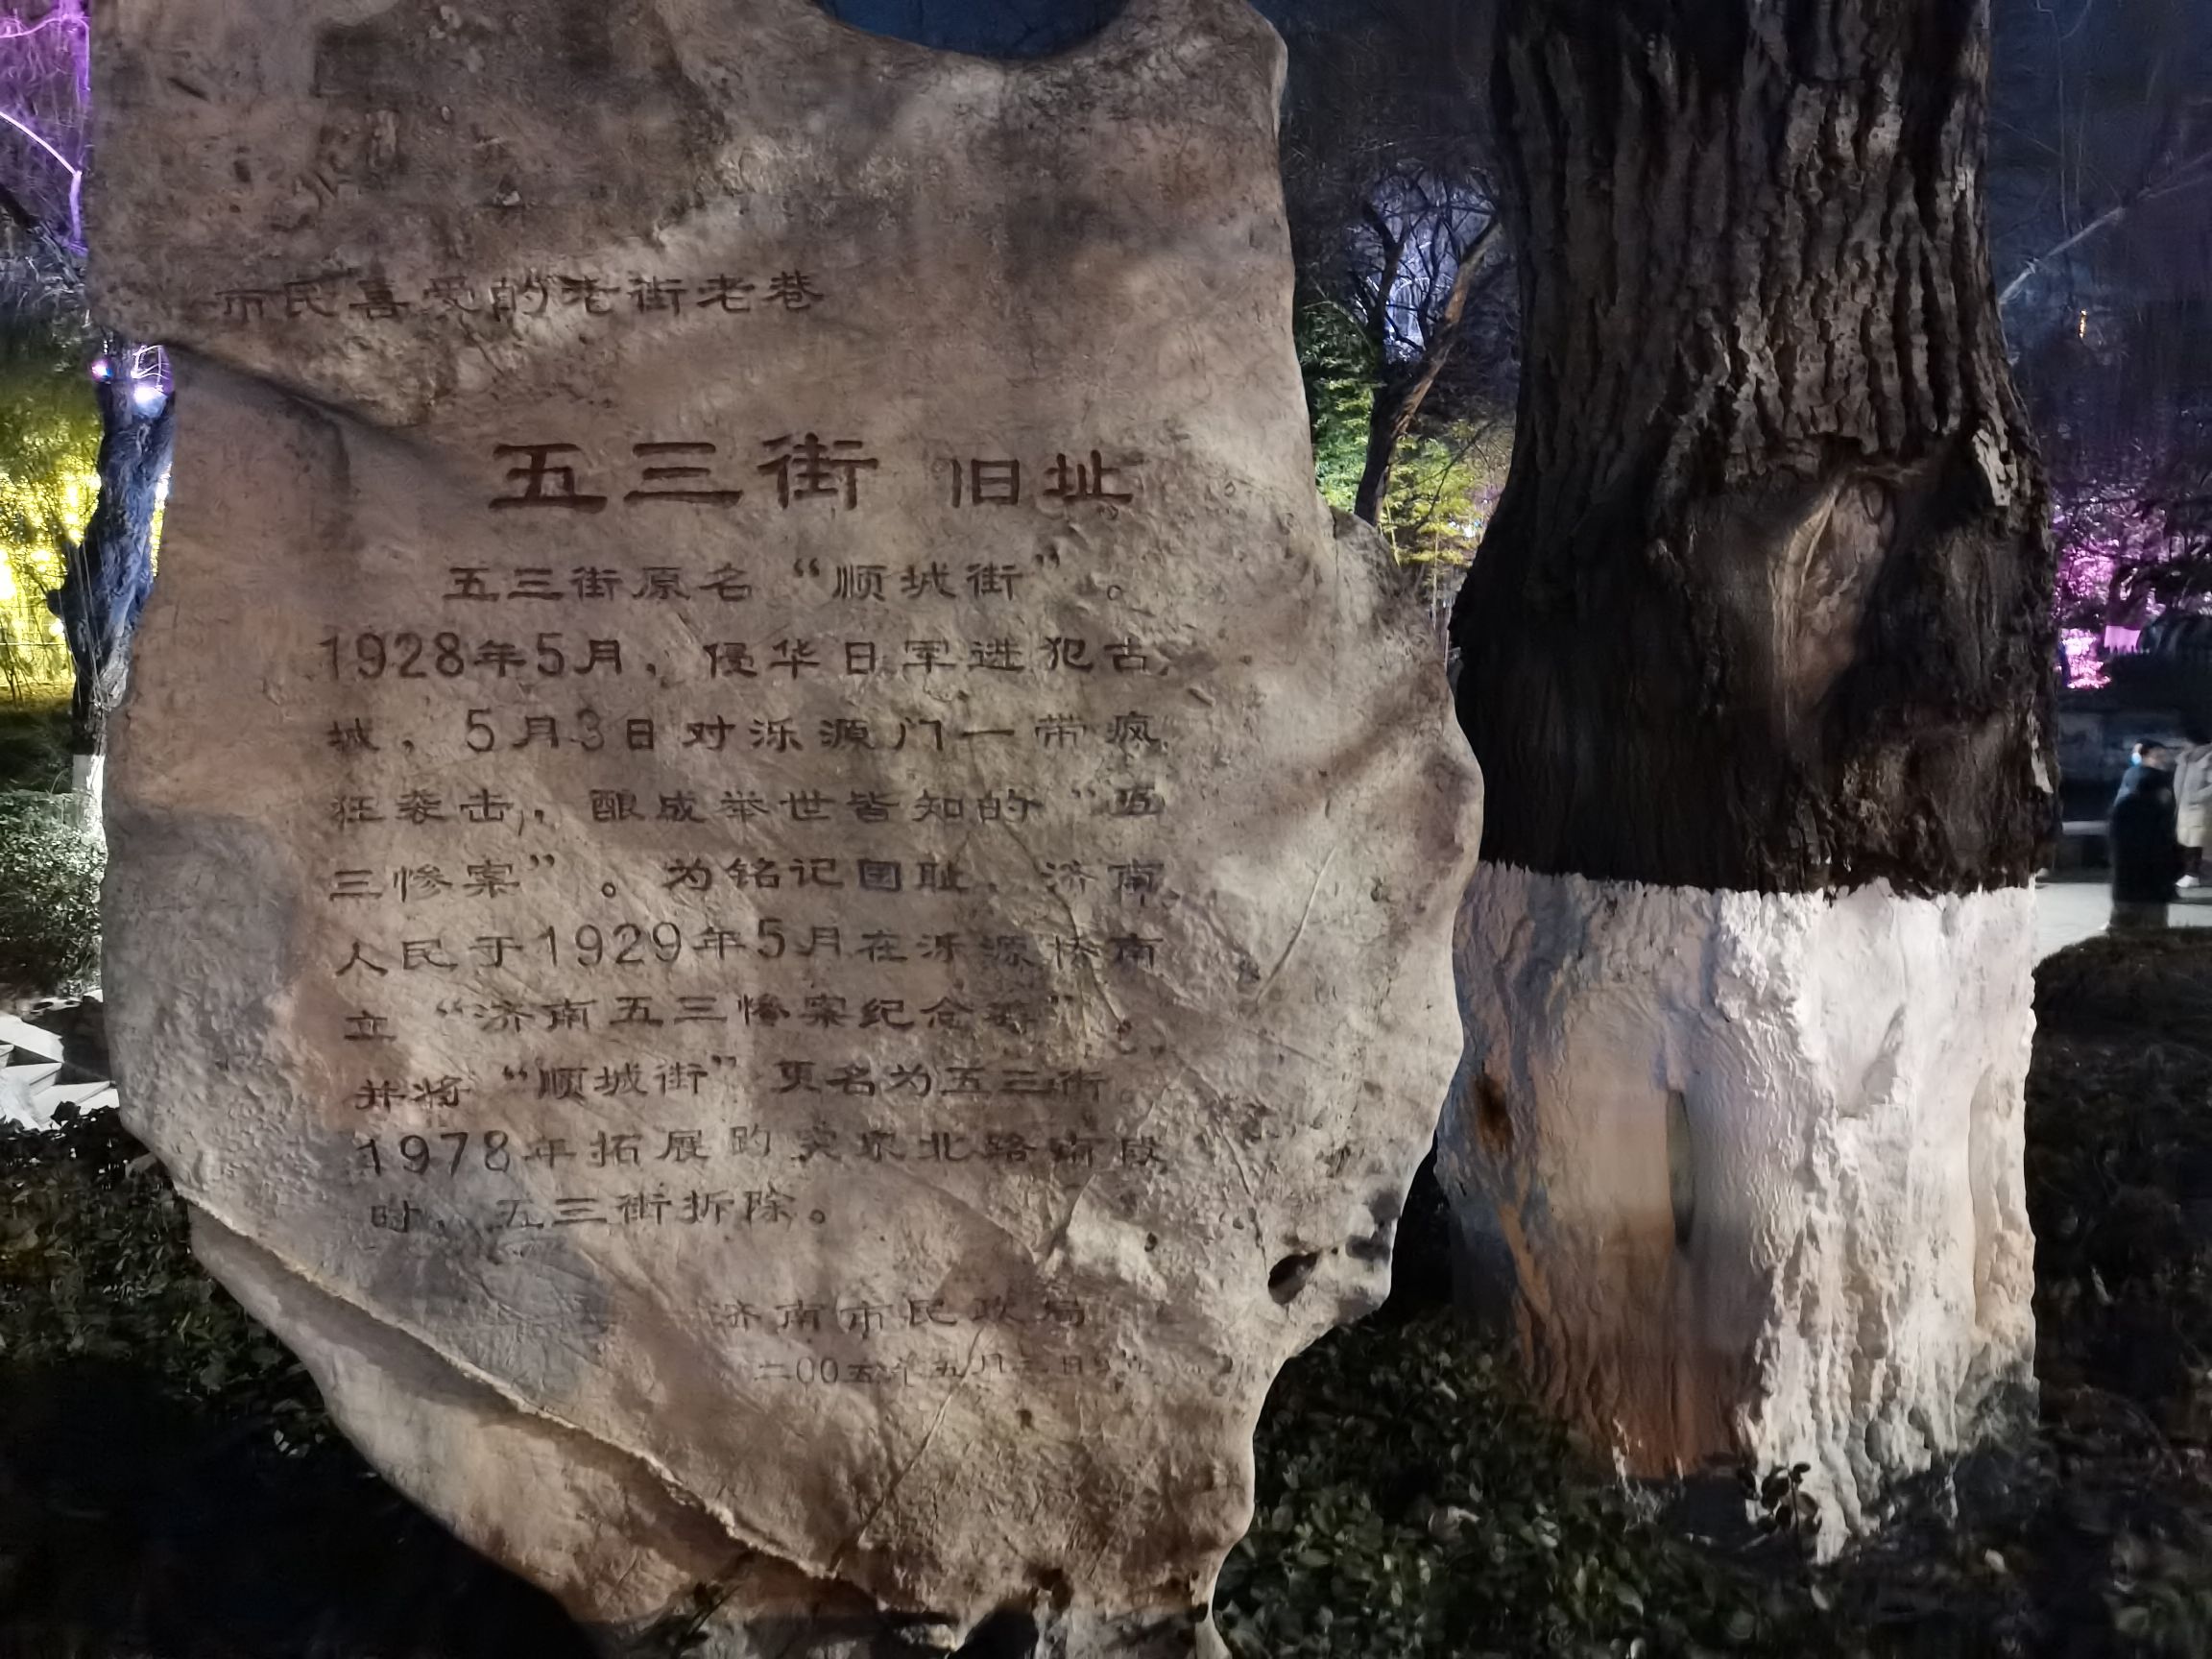 市民喜爱的老街老巷
五三街 旧址
五三街原名“顺城街”。
1928年5月，侵华日军进犯古
城，5月3日对泺源门一带疯
狂袭击，酿成举世皆知的“五
三惨案”。为铭记国耻，济南
人民于1929年5月在泺源桥南
立“济南五三惨案纪念碑”，
并将“顺城街”更名为五三街。
1978年拓展趵突泉北路南段
时，五三街拆除。
济南市民政局
二00五年五月三日